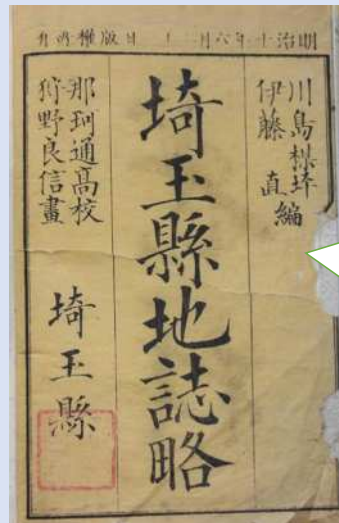 明治十年六月二十一日版權免許
川島楳坪
伊藤直編
埼玉縣地誌略
那珂通高校
狩野良信畫
埼玉縣